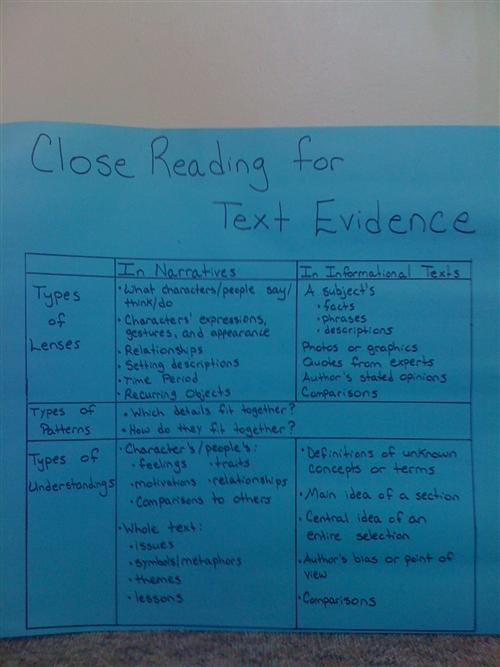 Close Reading for
Text Evidence
In Narratives
In Informational Texts
Types
of
Lenses
• What characters/people say/
think/do
• Characters' expressions,
gestures, and appearance
• Relationships
• Setting descriptions
• Time Period
• Recurring Objects
A subject's
• facts
• phrases
• descriptions
Photos or graphics
Quotes from experts
Author's stated opinions
Comparisons
Types of
Patterns
• Which details fit together?
• How do they fit together?
Types of
Understandings
• Character's/people's:
• feelings • traits
• motivations • relationships
• Comparisons to others
• Whole text:
• issues
• symbols/metaphors
• themes
• lessons
• Definitions of unknown
concepts or terms
• Main idea of a section
• Central idea of an
entire selection
• Author's bias or point of
view
• Comparisons